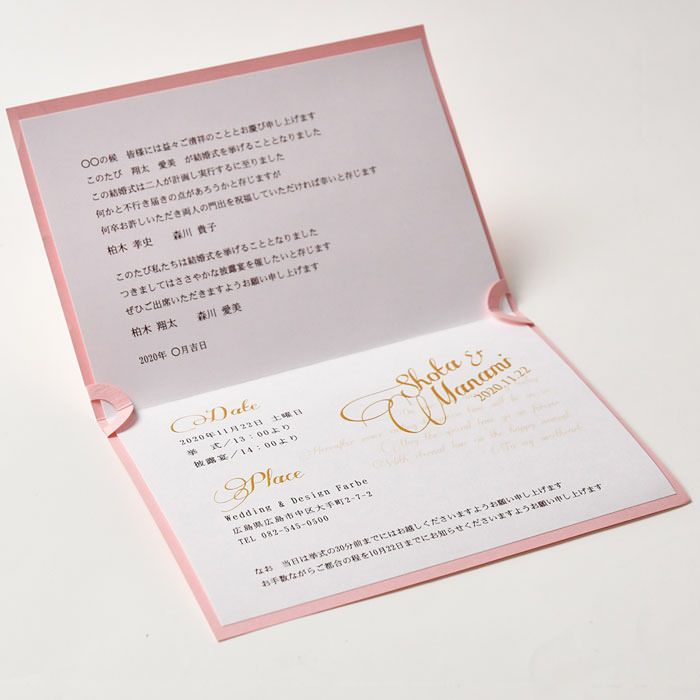 〇〇の候　皆様には益々ご清祥のこととお慶び申し上げます
このたび　翔太　愛美　が結婚式を挙げることとなりました
この結婚式は二人が計画し実行するに至りました
何かと不行き届きの点があろうかと存じますが
何卒お許しいただき両人の門出を祝福していただければ幸いと存じます
柏木 孝史　　森川 貴子
このたび私たちは結婚式を挙げることとなりました
つきましてはささやかな披露宴を催したいと存じます
ぜひご出席いただきますようお願い申し上げます
柏木 翔太　　森川 愛美
2020年 〇月吉日
Shota &
Manami
2020.11.22
Date
2020年11月22日 土曜日
挙　式/13：00より
披露宴/14：00より
Place
Wedding & Design Farbe
広島県広島市中区大手町2-7-2
TEL 082-545-0500
なお　当日は挙式の30分前までにはお越しくださいますようお願い申し上げます
お手数ながらご都合の程を10月22日までにお知らせくださいますようお願い申し上げます